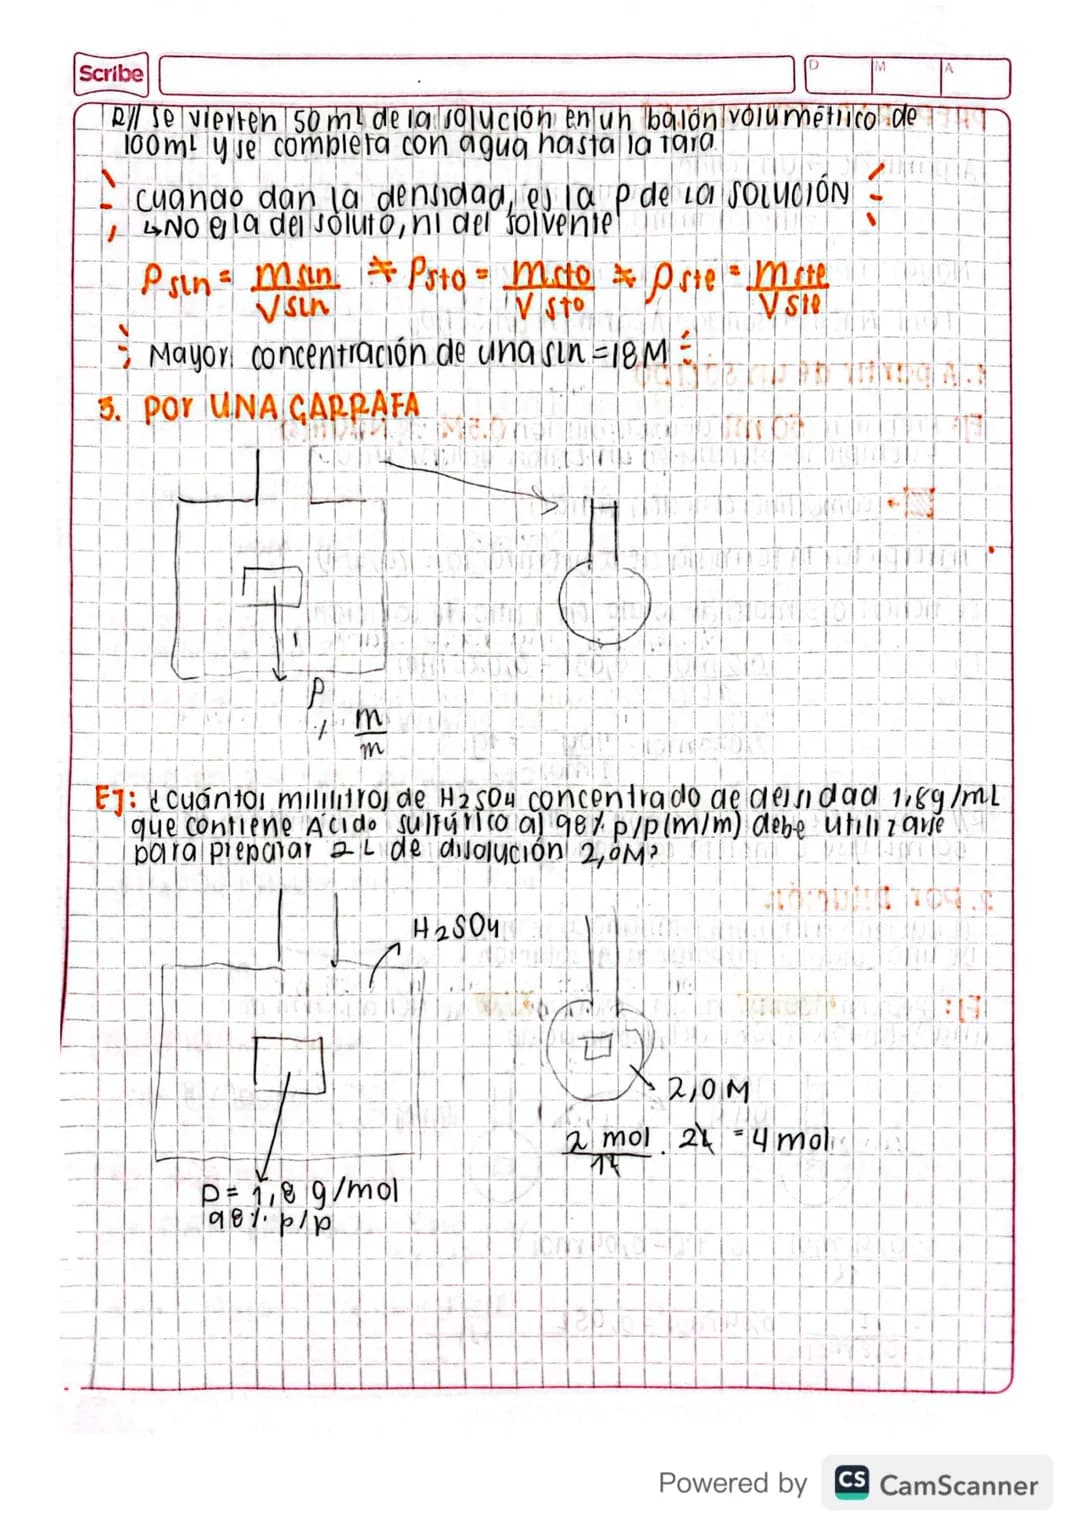 Scribe
D M A
R// se vierten 50 mL de la solución en un balón volumétrico de
100mL y se completa con agua hasta la tara.
cuando dan la densidad, es la ρ de la SOLUCIÓN
↳NO es la del soluto, ni del solvente
ρ sln = m sln / V sln * ρ sto = m sto / V sto * ρ ste = m ste / V ste
Mayor concentración de una sln = 18 M
3. POR UNA GARRAFA
ρ
% m/m
EJ: ¿Cuántos mililitros de H2SO4 concentrado de densidad 1,8g/mL
que contiene Ácido sulfúrico al 98% p/p (m/m) debe utilizarse
para preparar 2 L de disolución 2,0M?
H2SO4
2,0 M
2 mol / 1L . 2L = 4 mol
ρ = 1,8 g/mol
98% p/p
Powered by CS CamScanner